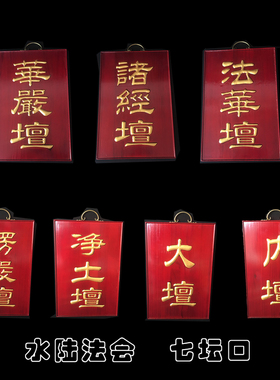 華嚴壇
諸經壇
法華壇
楞嚴壇
净土壇
大壇
内壇
水陆法会 七坛口